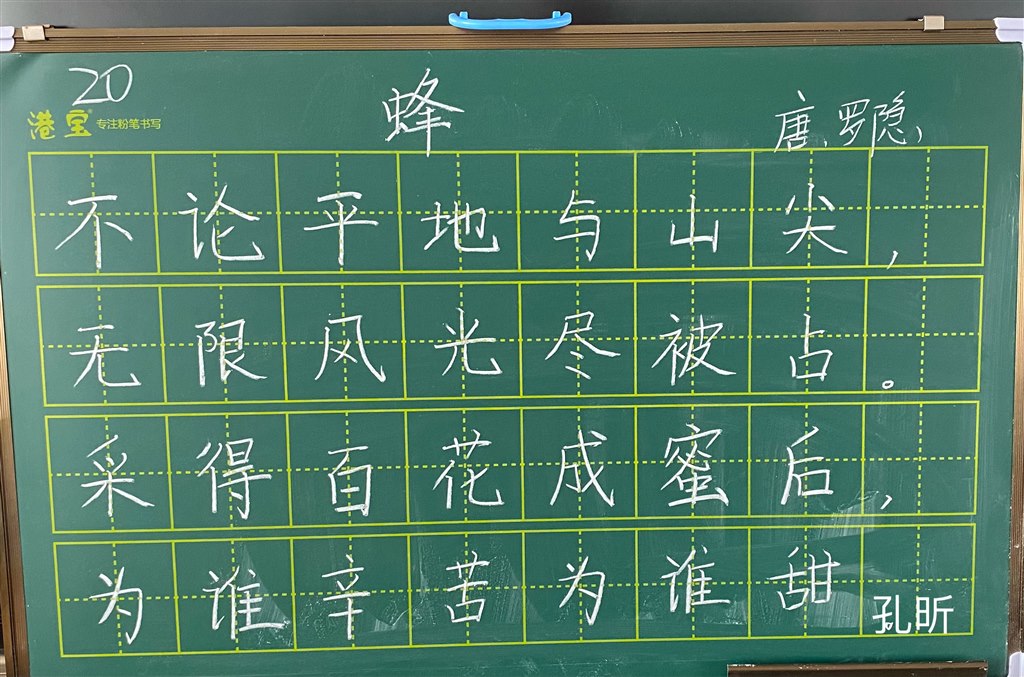 20
港宝 专注粉笔书写
蜂
唐、罗隐、
不论平地与山尖，
无限风光尽被占。
采得百花成蜜后，
为谁辛苦为谁甜
孔昕